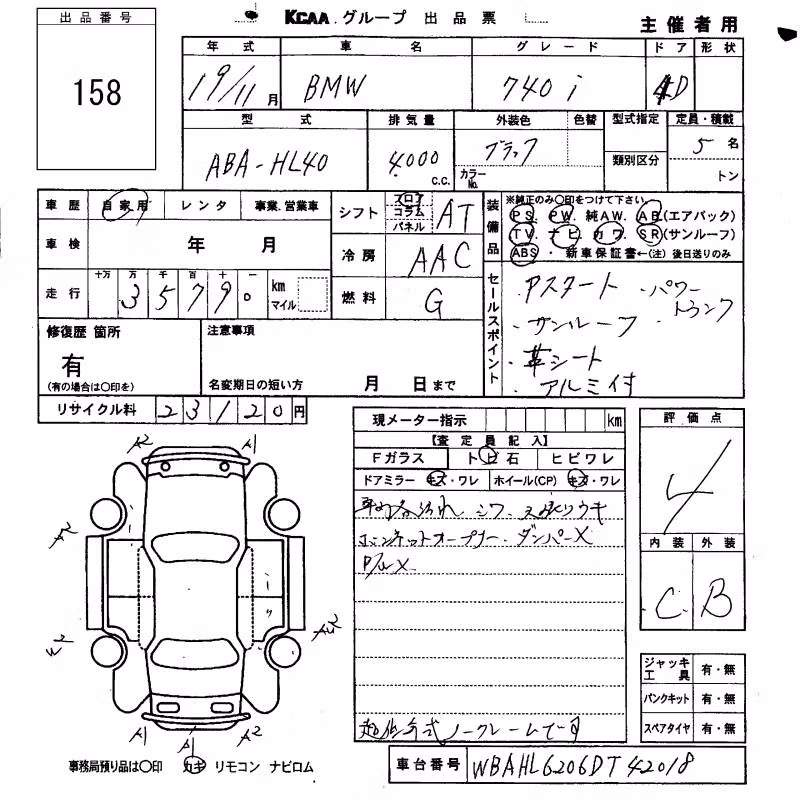 出品番号
158
KCAA グループ 出品票
主催者用
年式 車名 グレード ドア 形状
19/11月 BMW 740i 4D
型式 排気量 外装色 色替 型式指定 定員・積載
ABA-HL40 4.000 c.c. ブラック カラーNo. 類別区分 5名 トン
車歴 自家用 レンタ 事業.営業車
シフト フロア コラム パネル AT
装備品
※純正のみ○印をつけて下さい
PS. PW. 純AW. AB(エアバック)
TV. ナビ. カワ. SR(サンルーフ)
ABS・新車保証書←(注) 後日送りのみ
車検 年 月
冷房 AAC
走行 十万 万 千 百 十 一 35790 km マイル
燃料 G
セールスポイント
・Pスタート ・パワートランク
・サンルーフ
・革シート
・アルミ付
修復歴 箇所
有
(有の場合は○印を)
注意事項
名変期日の短い方 月 日まで
リサイクル料 23120円
現メーター指示 km
【査定員記入】
Fガラス トビ石 ヒビワレ
ドアミラー キズ・ワレ ホイール(CP) キズ・ワレ
シワ
ボンネットオープナー・ダンパーX
ノークレームです
評価点
4
内装 外装
C B
ジャッキ工具 有・無
パンクキット 有・無
スペアタイヤ 有・無
A2 A1
A2 A2
A1 A1 A2
事務局預り品は○印 カギ リモコン ナビロム
車台番号 WBAHL6206DT42018